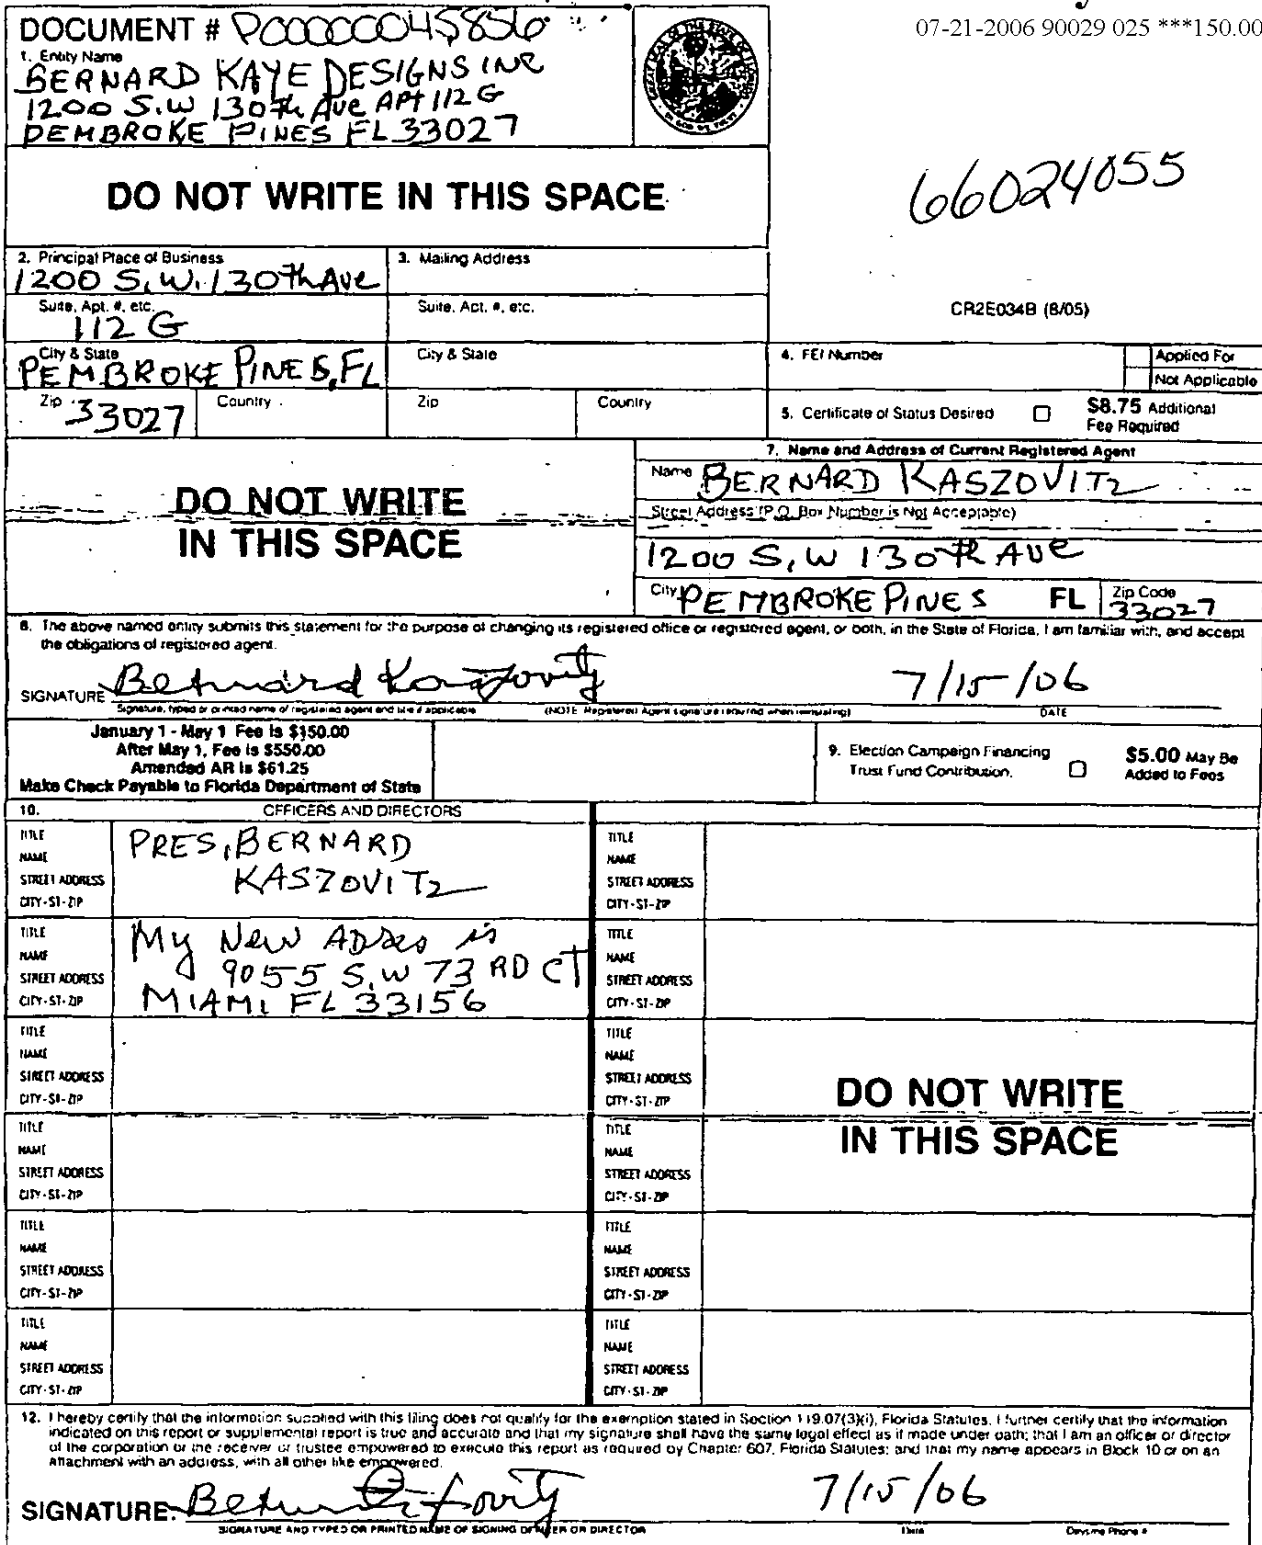 07-21-2006 90029 025 ***150.00
DOCUMENT # P00000045856
1. Entity Name
BERNARD KAYE DESIGNS INC
1200 S.W 130th Ave APt 112 G
PEMBROKE PINES FL 33027
DO NOT WRITE IN THIS SPACE
66024055
2. Principal Place of Business
1200 S.W. 130th Ave
3. Mailing Address
Suite, Apt. #, etc.
112 G
Suite, Apt. #, etc.
CR2E034B (8/05)
City & State
PEMBROKE PINES, FL
City & State
4. FEI Number
Applied For
Not Applicable
Zip
33027
Country
Zip
Country
5. Certificate of Status Desired
$8.75 Additional
Fee Required
7. Name and Address of Current Registered Agent
Name BERNARD KASZOVITZ
DO NOT WRITE
IN THIS SPACE
Street Address (P.O. Box Number is Not Acceptable)
1200 S.W 130th Ave
City PEMBROKE PINES FL Zip Code 33027
8. The above named entity submits this statement for the purpose of changing its registered office or registered agent, or both, in the State of Florida. I am familiar with, and accept
the obligations of registered agent.
SIGNATURE Bernard Kaszovitz 7/15/06
Signature, typed or printed name of registered agent and title if applicable (NOTE: Registered Agent signature required when reinstating) DATE
January 1 - May 1 Fee is $150.00
After May 1, Fee is $550.00
Amended AR is $61.25
Make Check Payable to Florida Department of State
9. Election Campaign Financing
Trust Fund Contribution.
$5.00 May Be
Added to Fees
10. OFFICERS AND DIRECTORS
TITLE
NAME
STREET ADDRESS
CITY-ST-ZIP
PRES, BERNARD
KASZOVITZ
TITLE
NAME
STREET ADDRESS
CITY-ST-ZIP
TITLE
NAME
STREET ADDRESS
CITY-ST-ZIP
My New is
9055 S.W 73 RD CT
MIAMI FL 33156
TITLE
NAME
STREET ADDRESS
CITY-ST-ZIP
TITLE
NAME
STREET ADDRESS
CITY-ST-ZIP
TITLE
NAME
STREET ADDRESS
CITY-ST-ZIP
DO NOT WRITE
IN THIS SPACE
TITLE
NAME
STREET ADDRESS
CITY-ST-ZIP
TITLE
NAME
STREET ADDRESS
CITY-ST-ZIP
TITLE
NAME
STREET ADDRESS
CITY-ST-ZIP
TITLE
NAME
STREET ADDRESS
CITY-ST-ZIP
TITLE
NAME
STREET ADDRESS
CITY-ST-ZIP
TITLE
NAME
STREET ADDRESS
CITY-ST-ZIP
12. I hereby certify that the information supplied with this filing does not qualify for the exemption stated in Section 119.07(3)(i), Florida Statutes. I further certify that the information
indicated on this report or supplemental report is true and accurate and that my signature shall have the same legal effect as if made under oath; that I am an officer or director
of the corporation or the receiver or trustee empowered to execute this report as required by Chapter 607, Florida Statutes; and that my name appears in Block 10 or on an
attachment with an address, with all other like empowered.
SIGNATURE: 7/15/06
SIGNATURE AND TYPED OR PRINTED NAME OF SIGNING OFFICER OR DIRECTOR Date Daytime Phone #